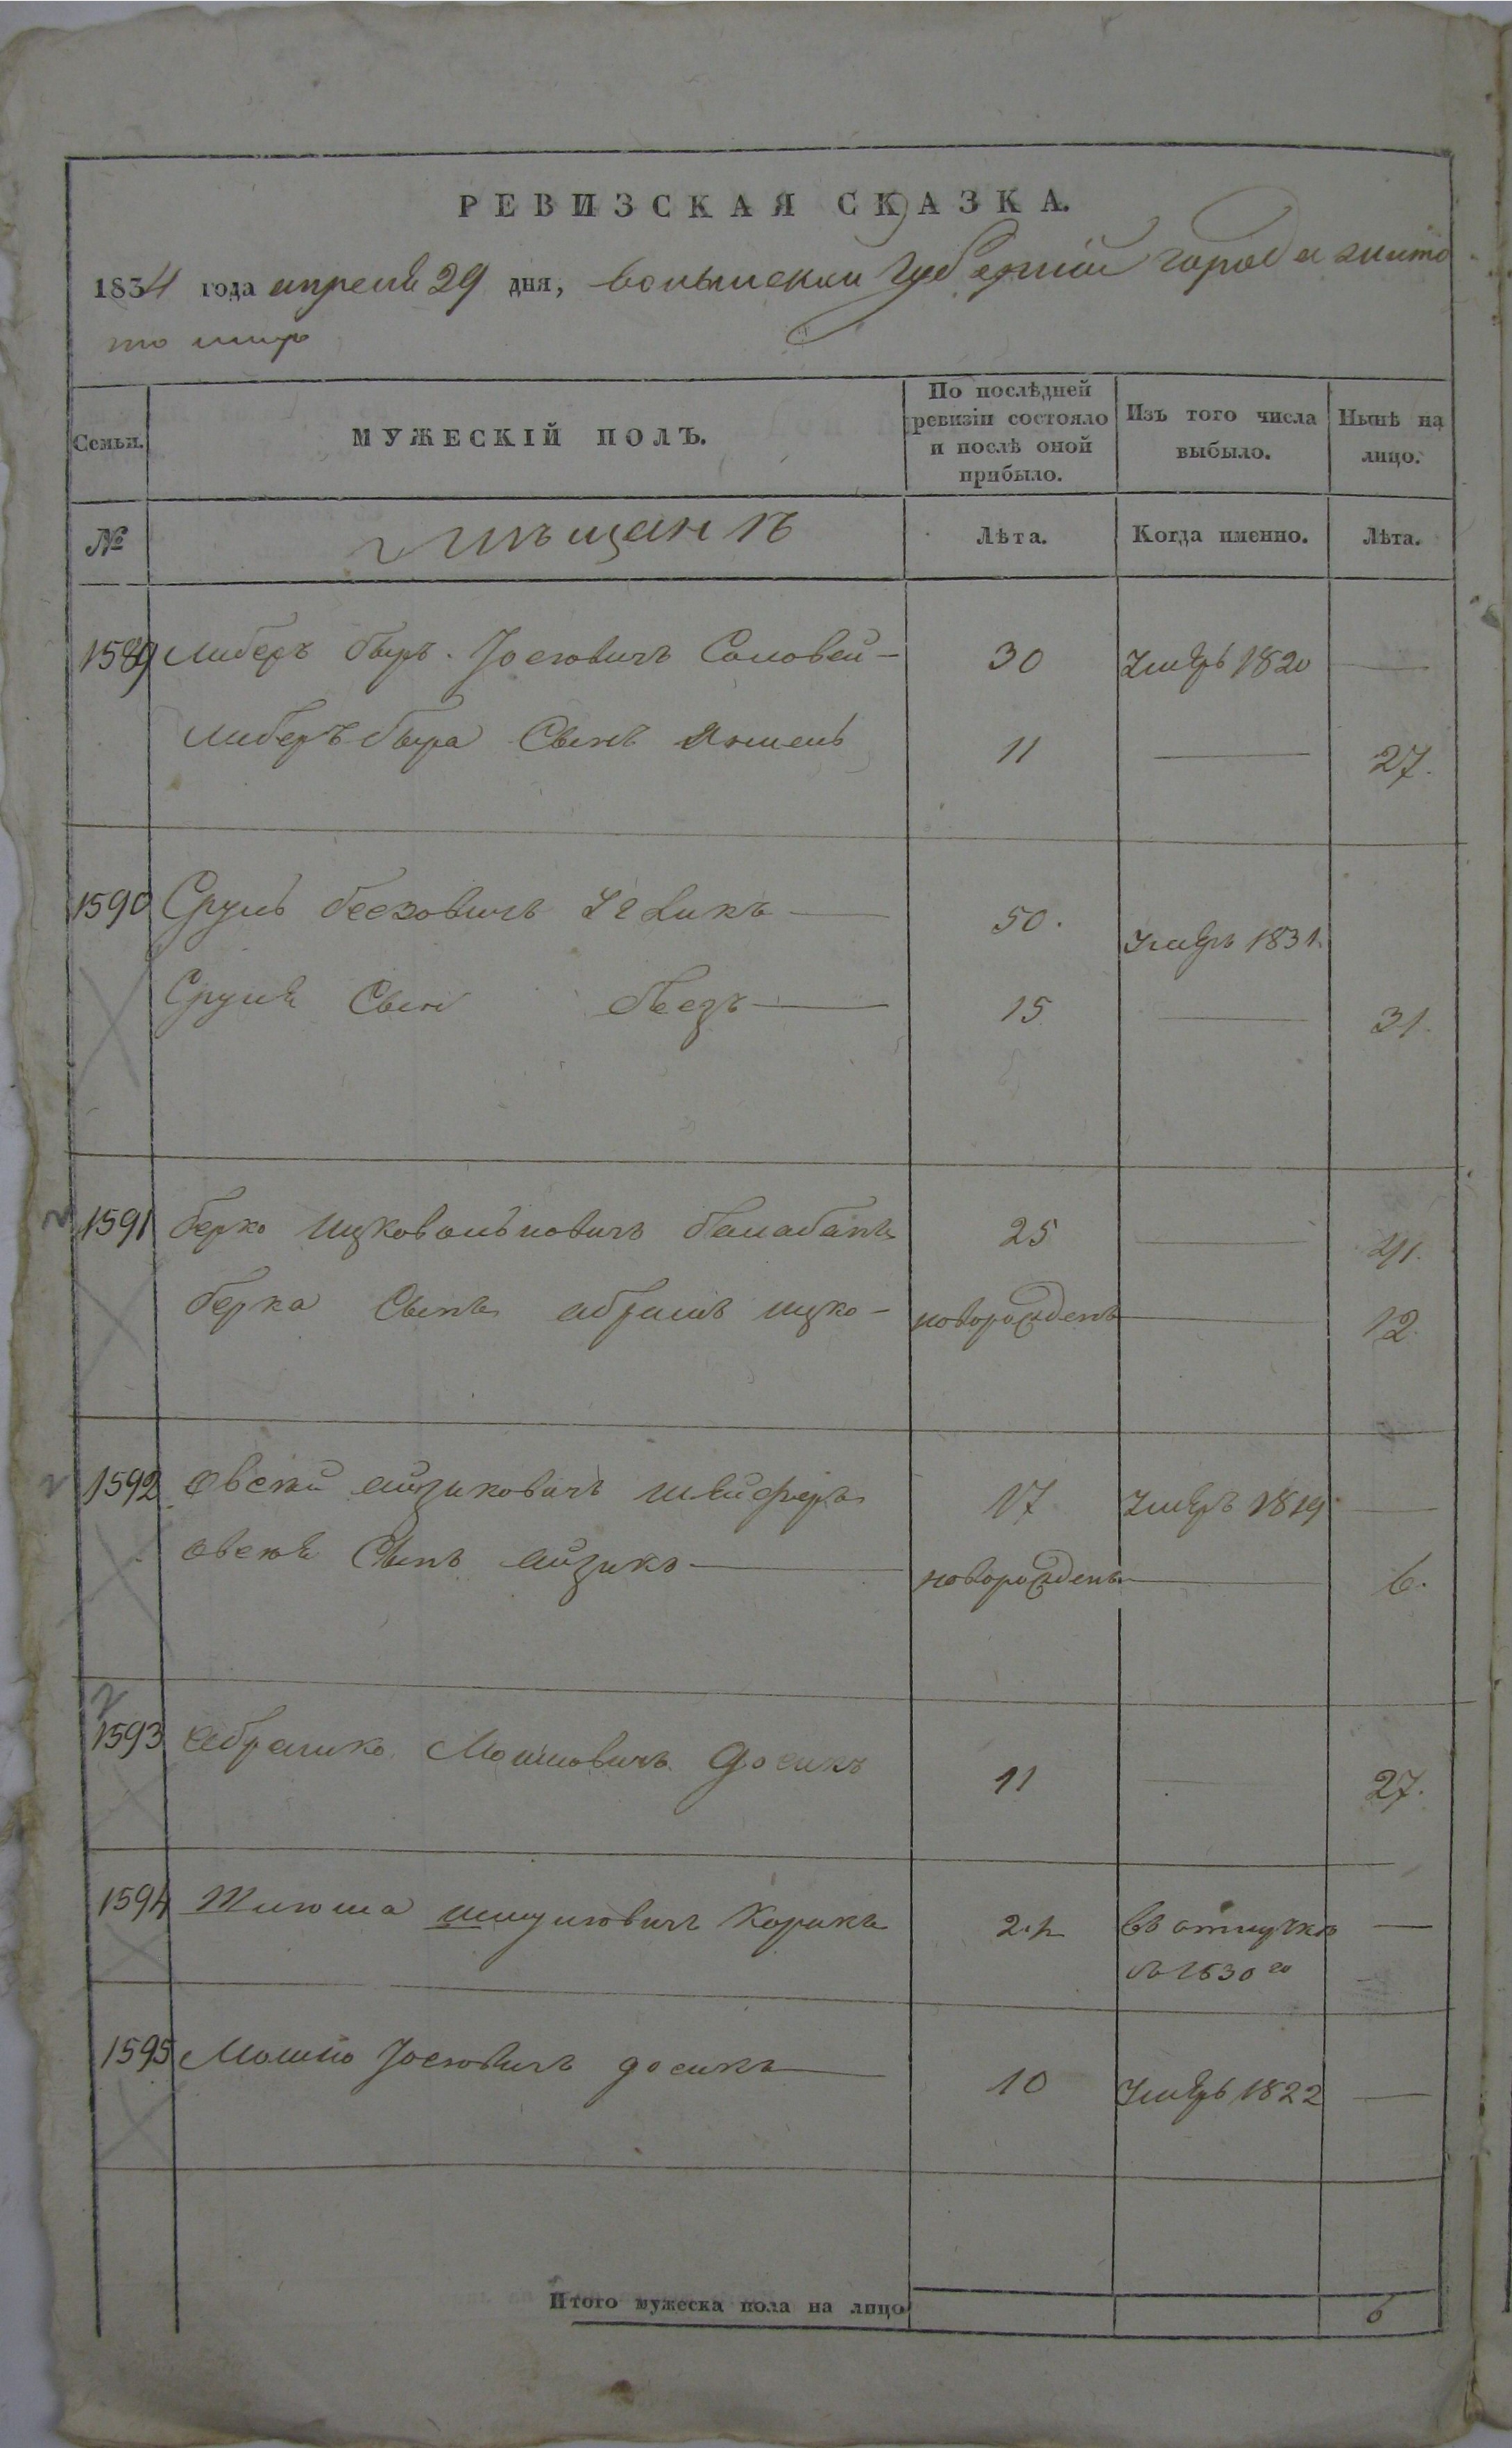 РЕВИЗСКАЯ СКАЗКА.
1834 года апреля 29 дня, волынской губернии города жито
мира
Семьи.
МУЖЕСКІЙ ПОЛЪ.
По послѣдней ревизіи состояло и послѣ оной прибыло.
Изъ того числа выбыло.
Нынѣ на лицо.
№
мѣщанъ
Лѣта.
Когда именно.
Лѣта.
1589 Либеръ беръ Іосіовичъ Соловей — 30 Умеръ 1820 —
Либеръ бера Сынъ 11 — 27.
1590 Сруль 50. Умеръ 1831.
Сруля Сынъ 15 — 31.
1591 берко балабанъ 25 — 41.
берка Сынъ абрамъ ицко — новорожденъ — 12
1592 овсей айзиковичъ 17 Умеръ 1819 —
овсея Сынъ айзикъ — новорожденъ — 6.
1593 абрамко Мошковичъ досикъ 11 — 27.
1594 Корикъ въ отлучкѣ —
съ 1830 го
1595 Мошко Іосіовичъ досикъ — 10 Умеръ 1822 —
Итого мужеска пола на лицо 6